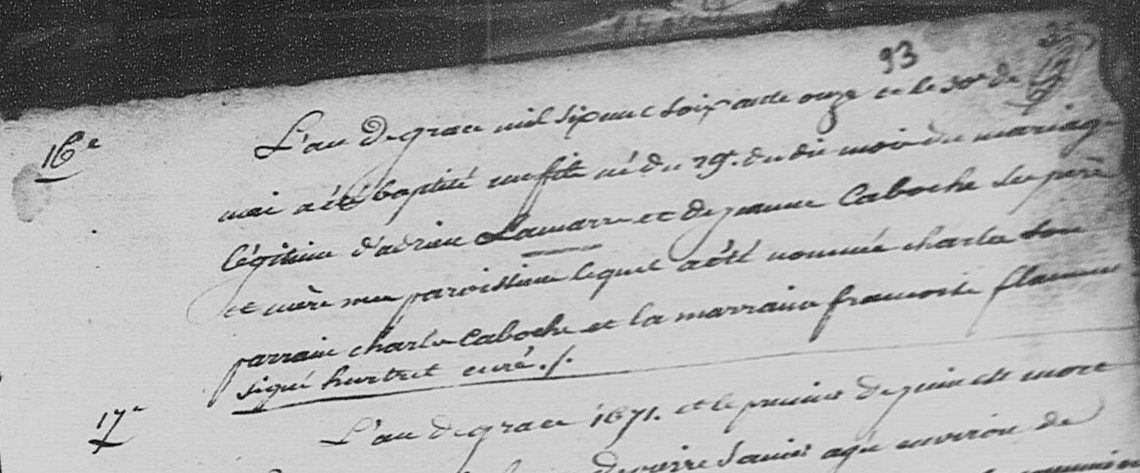 93
16e L'an De grace mil six cent soixante onze et le 30e de
mai a été baptisé un fils né du 29e. du dit mois du mariage
légitime d'adrien Lamarre et de jeanne Caboche ses père
et mère mes paroissiens lequel a été nommé charles son
parrain charles Caboche et la marraine francoise flamen
signé hurtret curé ./.
17e L'an De grace 1671. et le premier De juin est mort
Louis agé environ de